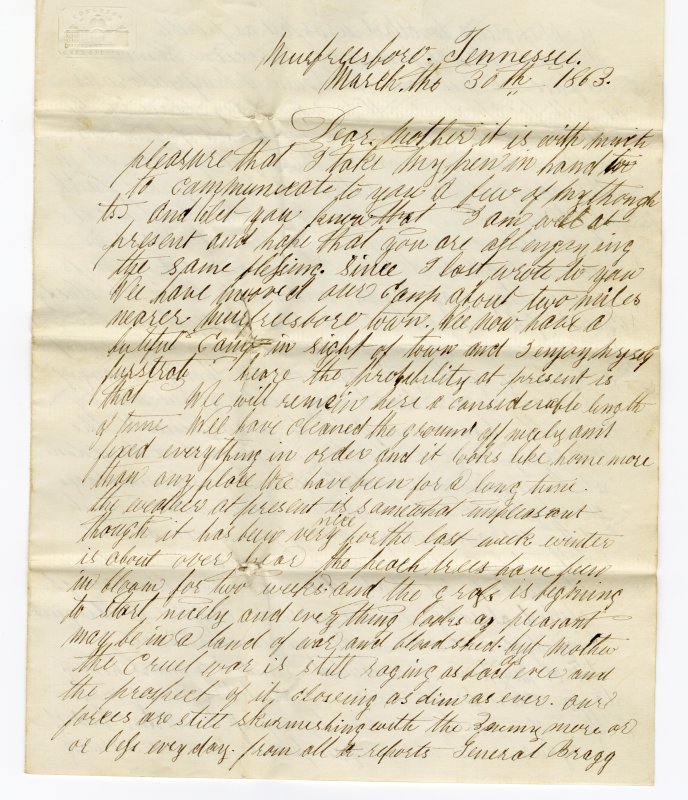 CONGRESS
Murfreesboro. Tennessee.
March. the 30th 1863.
Dear. Mother it is with much
pleasure that I take my pen in hand
to communicate to you a few of my though
ts, and let you know that I am well at
present and hope that you are all enjoying
the same blesing. Since I last wrote to you
We have moved our Camp about two miles
nearer Murfreesboro town. We now have a
butiful Camp in sight of town and I enjoy myself
furstrate heare the probibility at present is
that We will remain here a considerable length
of time We have cleaned the ground off nicely and
fixed everything in order and it looks like home more
than any place We have been for a long time.
the weather at present is somewhat unpleasant
though it has been very nice for the last week winter
is about over hear the peach trees have been
in bloom for two weeks and the grass is begining
to start nicely and every thing looks as pleasant
may be in a land of war and blood shed. but mother
the Cruel war is still raging as bad as ever and
the prospect of it, closeing as dim as ever. our
forces are still skirmishing with the Enemy more or
or less every day. from all reports General Bragg